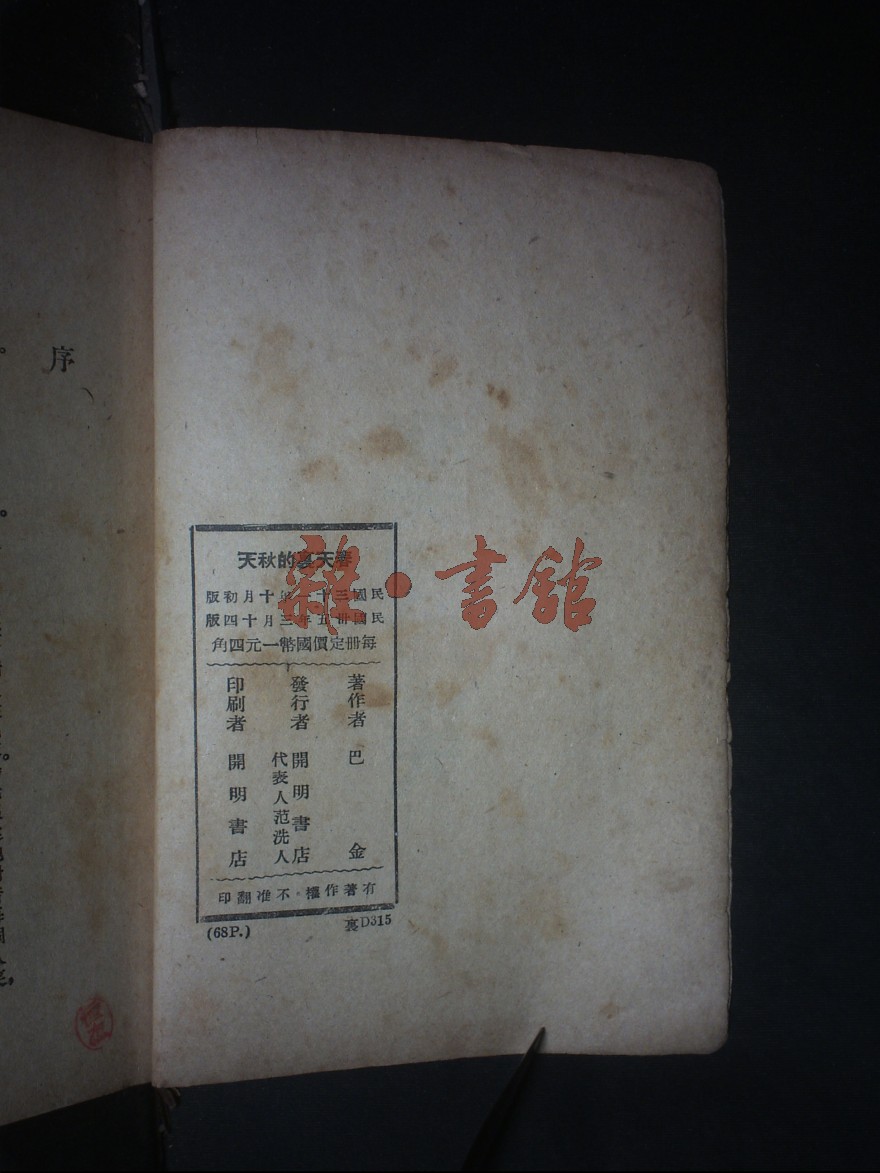 春天裏的秋天
民國二十一年十月初版
民國卅五年三月十四版
每冊定價國幣一元四角
著作者 巴金
發行者 開明書店
代表人范洗人
印刷者 開明書店
有著作權·不准翻印
(68P.)
裏D315
序
雜·書館